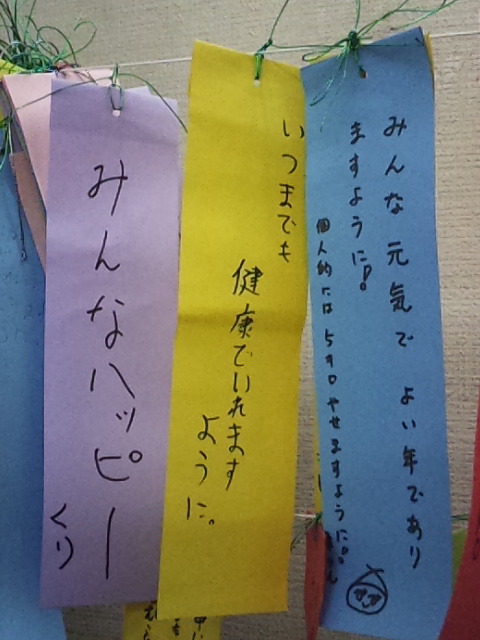 みんな元気で よい年であり
ますように!!
個人的には5キロやせますように!!
いつまでも
健康でいれます
ように。
みんなハッピー
くり